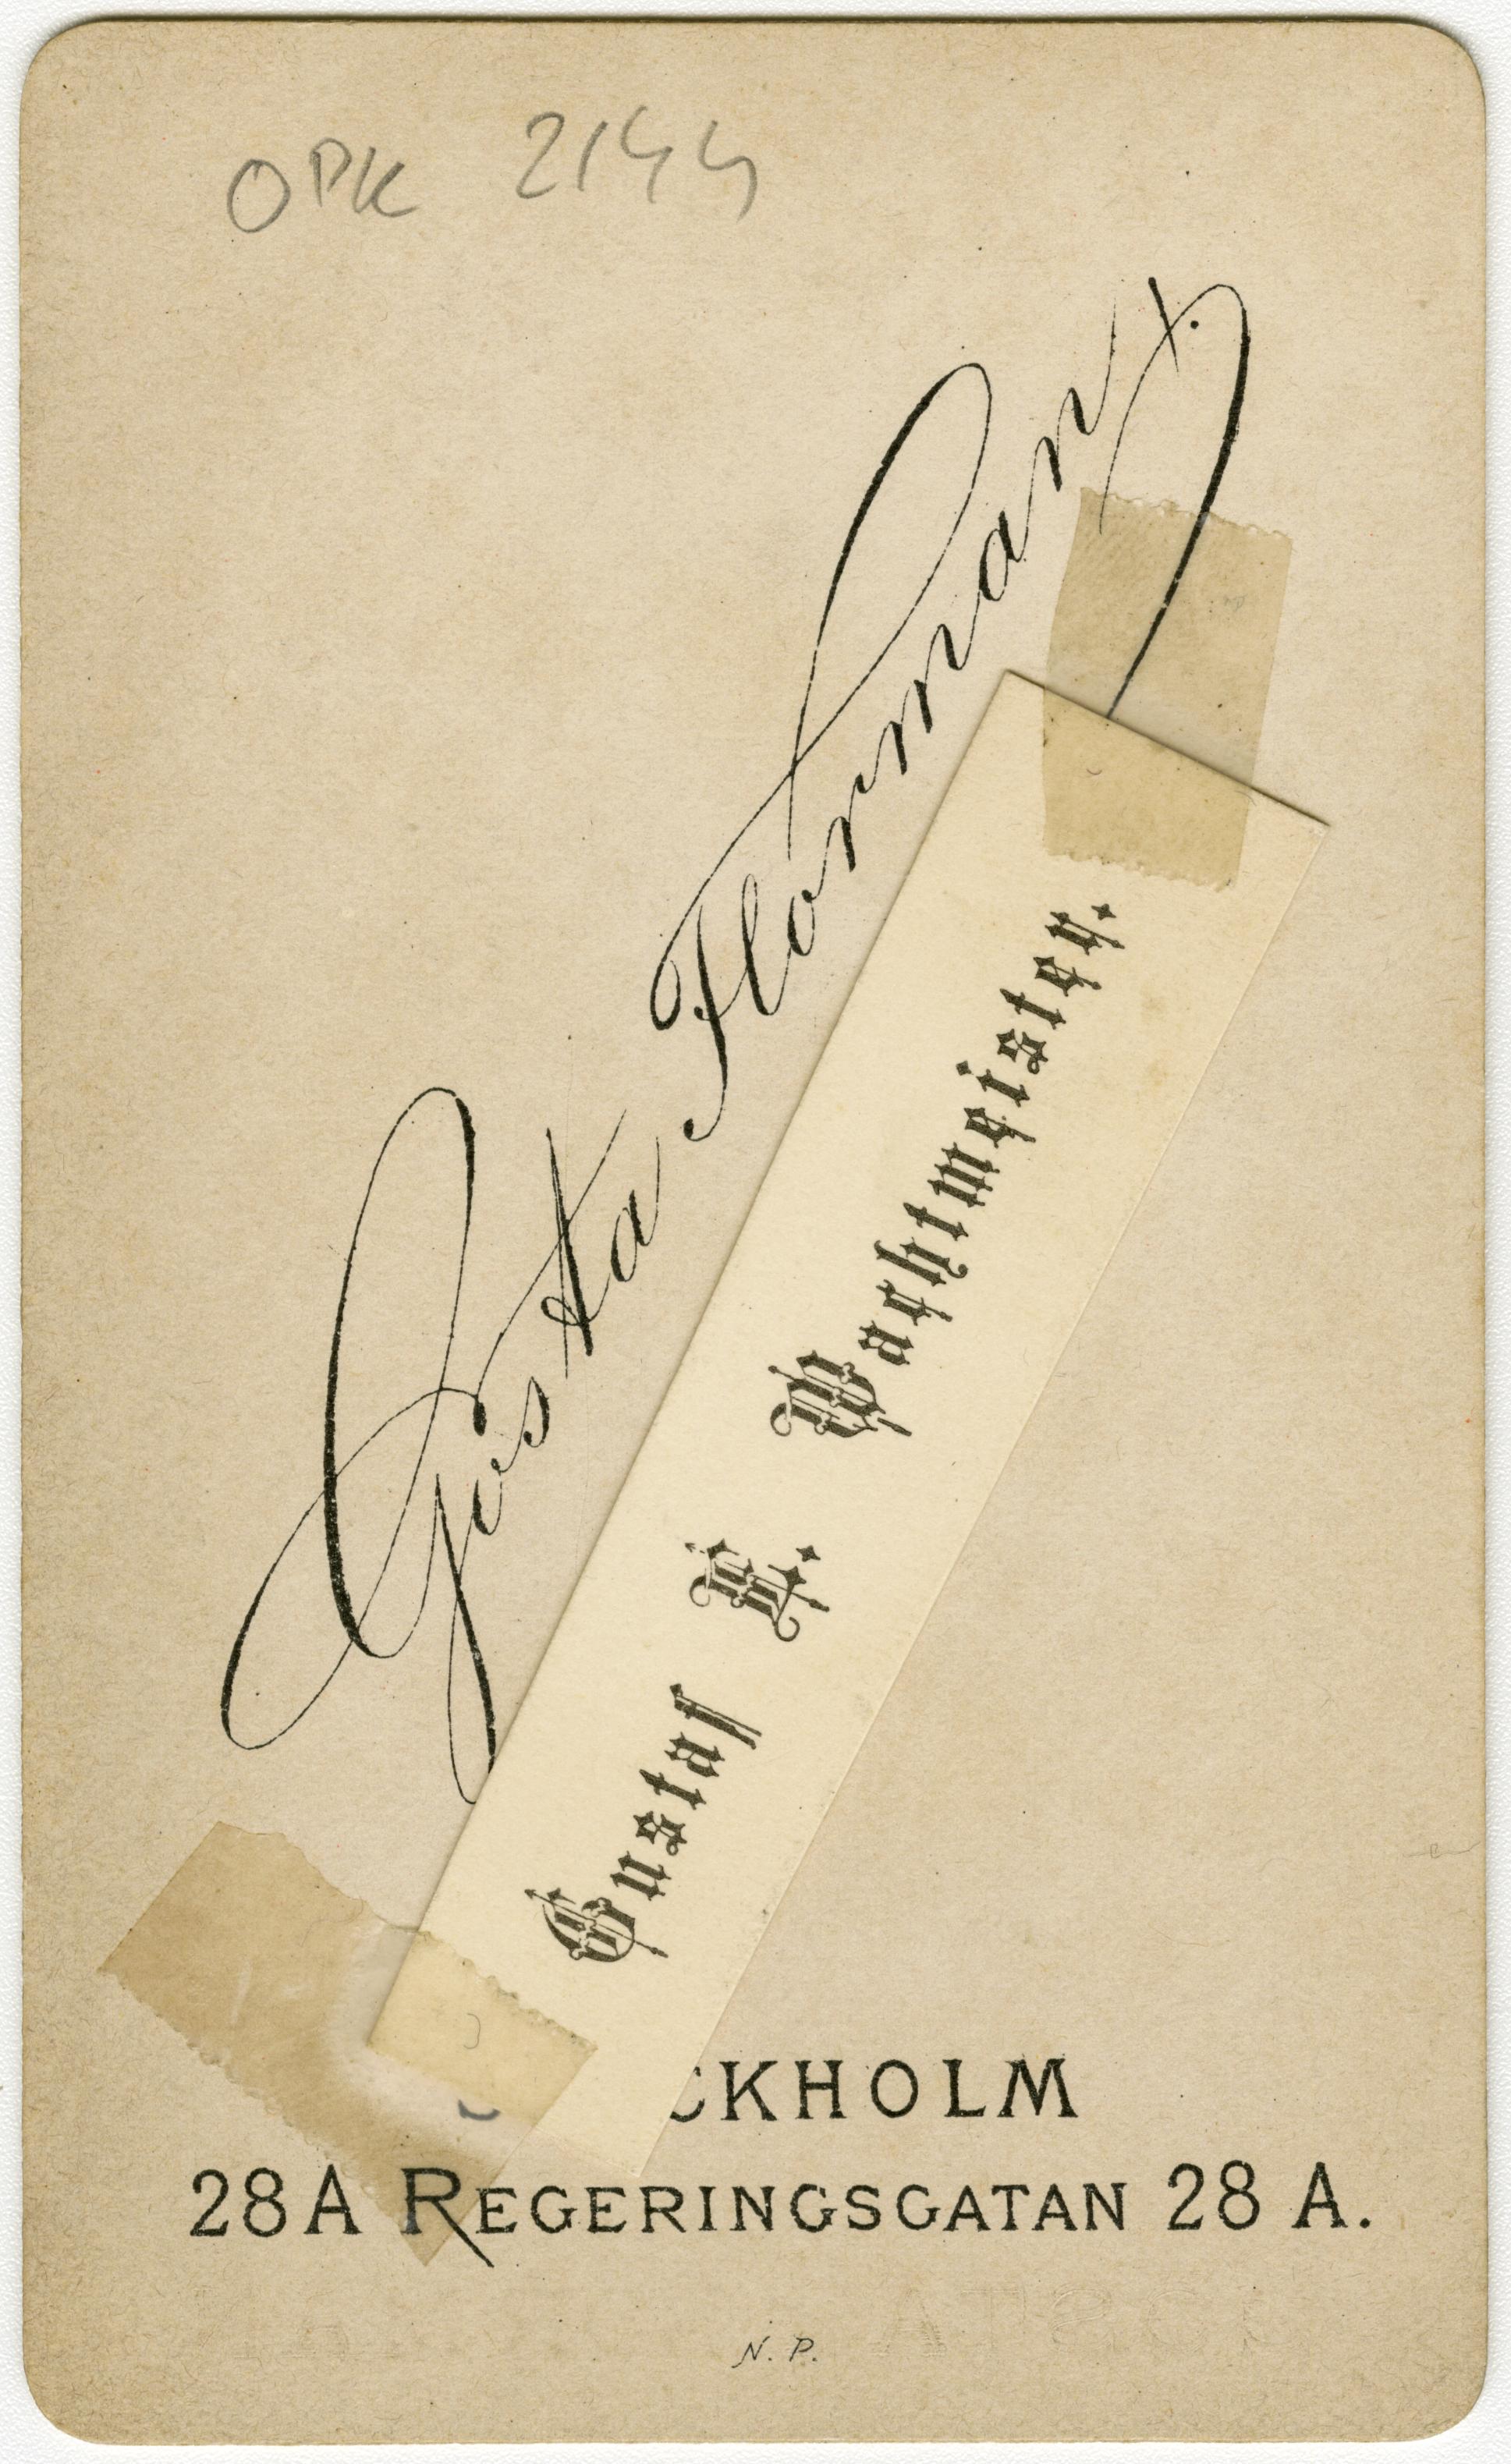 OPK 2144
Gösta Florman
Gustaf E. Wachtmeister.
CKHOLM
28A REGERINGSGATAN 28 A.
N. P.